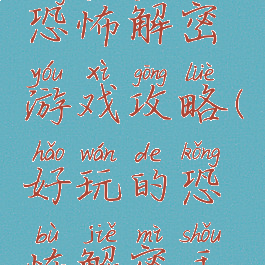 恐怖解密
yóu xì gōng lüè
游戏攻略(
hǎo wán de kǒng
好玩的恐
bù jiě mì shǒu
怖解密